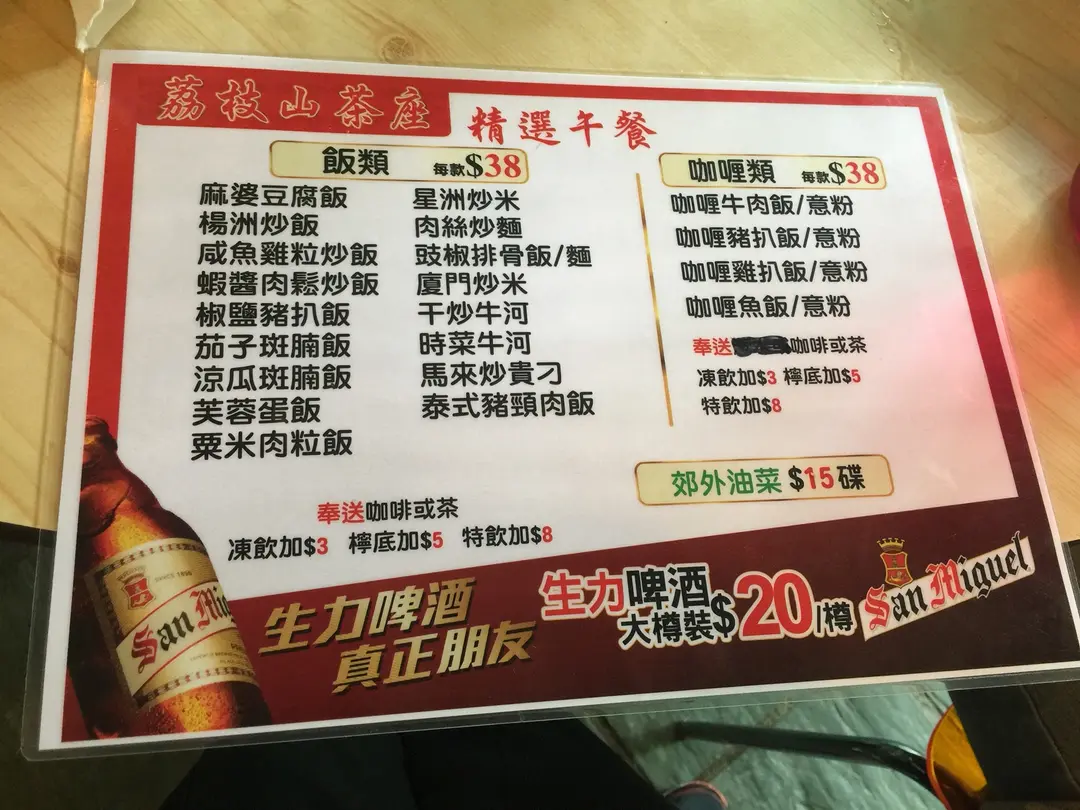 荔枝山茶座
精選午餐
飯類 每款$38
麻婆豆腐飯
楊洲炒飯
咸魚雞粒炒飯
蝦醬肉鬆炒飯
椒鹽豬扒飯
茄子斑腩飯
涼瓜斑腩飯
芙蓉蛋飯
粟米肉粒飯
星洲炒米
肉絲炒麵
豉椒排骨飯/麵
廈門炒米
干炒牛河
時菜牛河
馬來炒貴刁
泰式豬頸肉飯
奉送咖啡或茶
凍飲加$3 檸底加$5 特飲加$8
咖喱類 每款$38
咖喱牛肉飯/意粉
咖喱豬扒飯/意粉
咖喱雞扒飯/意粉
咖喱魚飯/意粉
奉送咖啡或茶
凍飲加$3 檸底加$5
特飲加$8
郊外油菜 $15碟
生力啤酒
真正朋友
生力啤酒
大樽裝$20/樽
San Miguel
SINCE 1890
San Mig